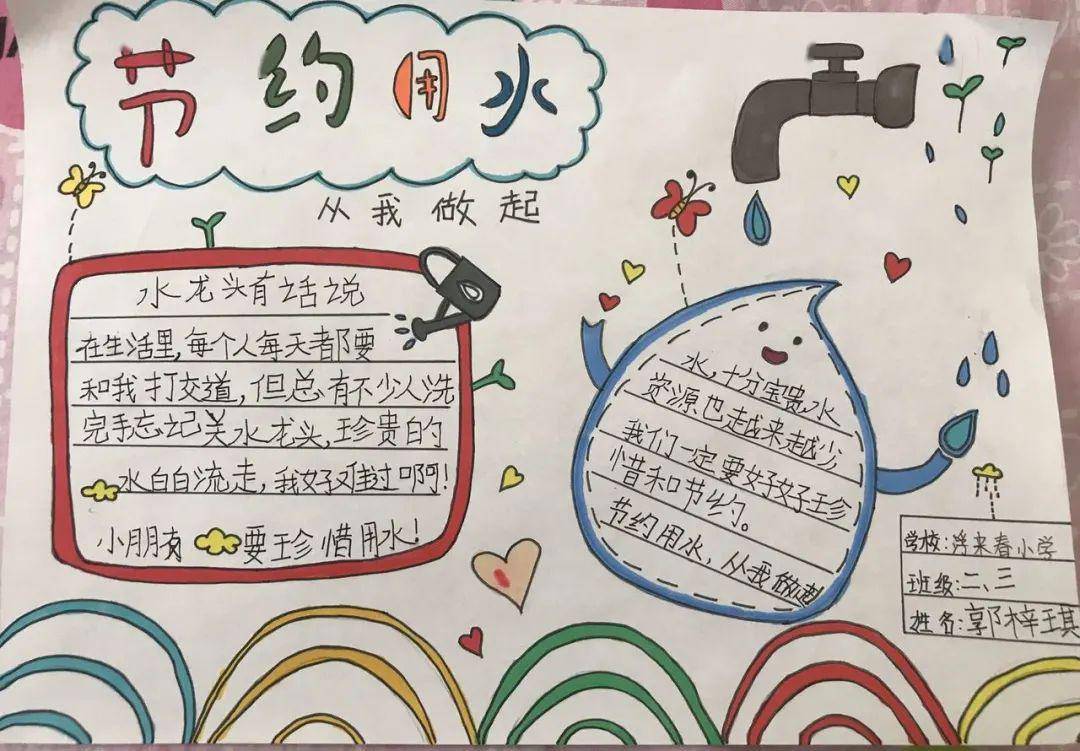 节约用水
从我做起
水龙头有话说
在生活里,每个人每天都要
和我打交道,但总有不少人洗
完手忘记关水龙头,珍贵的
水白白流走,我好难过啊!
小朋友要珍惜用水!
水,十分宝贵水
资源也越来越少
我们一定要好好珍
惜和节约。
节约用水,从我做起
学校:浮来春小学
班级:二、三
姓名:郭梓琪